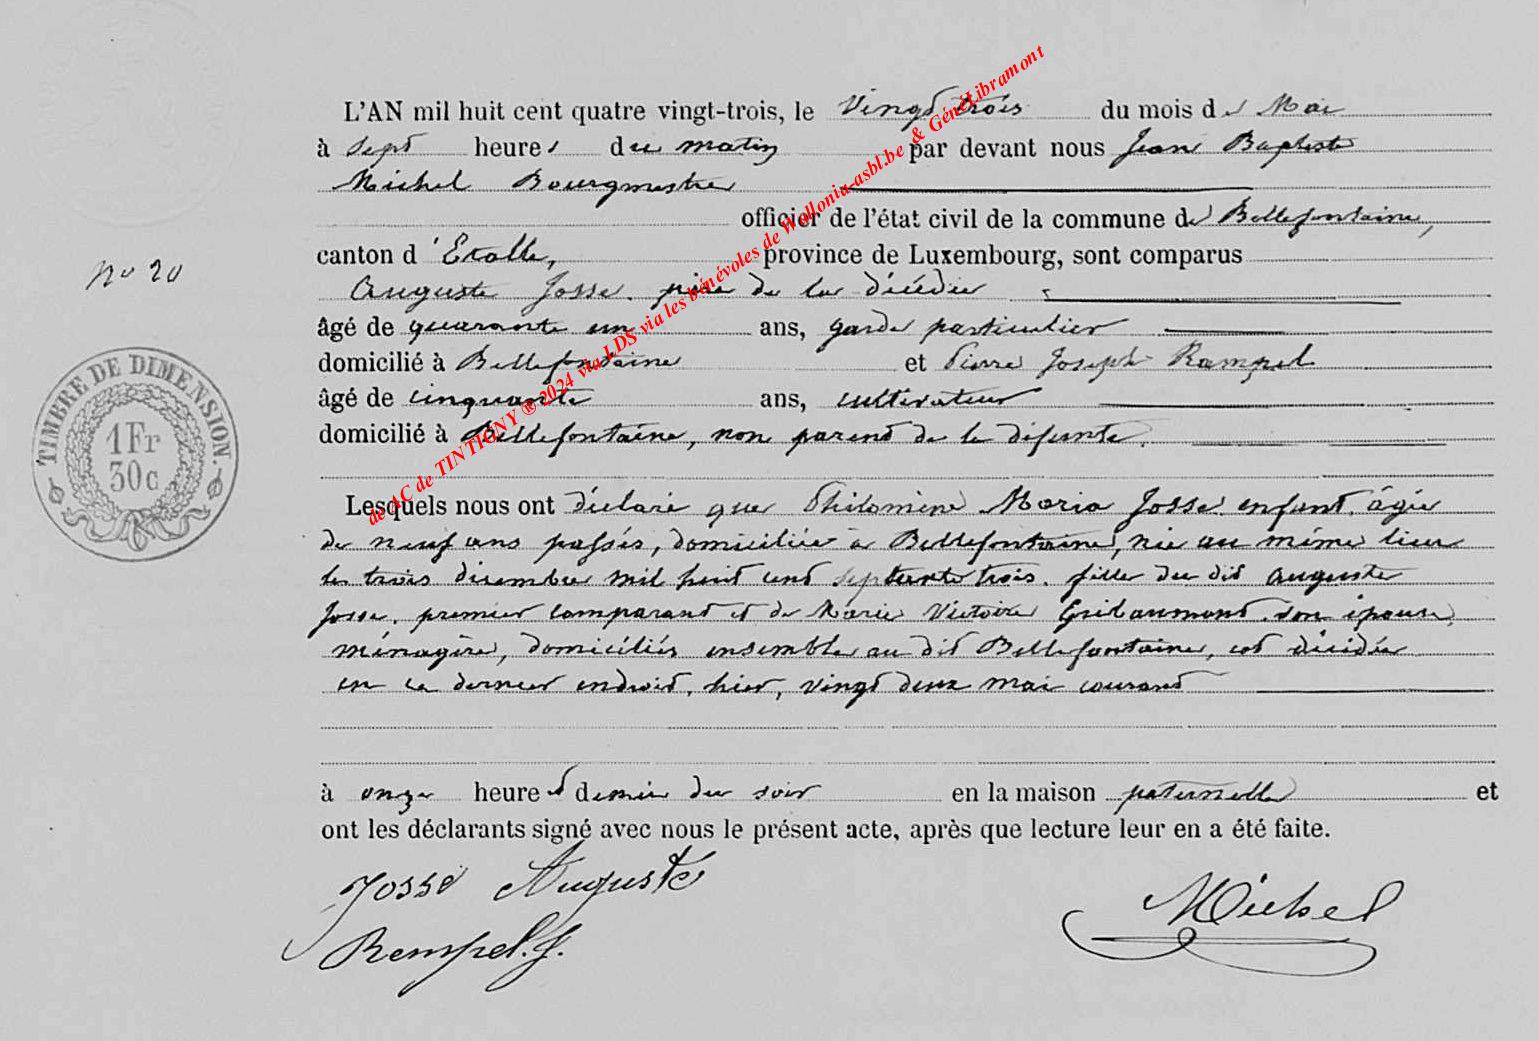 L'AN mil huit cent quatre vingt-trois, le Vingt trois du mois de Mai
à sept heures du matin par devant nous Jean Baptiste
Michel Bourgmestre
officier de l'état civil de la commune de Bellefontaine,
canton d'Etalle, province de Luxembourg, sont comparus
No 20
Auguste Josse, père de la décédée
âgé de quarante un ans, garde particulier
domicilié à Bellefontaine et Pierre Joseph Rampel
âgé de cinquante ans, cultivateur
domicilié à Bellefontaine, non parent de la défunte.
TIMBRE DE DIMENSION.
1Fr
30c
Lesquels nous ont déclaré que Philomène Maria Josse, enfant, âgée
de neuf ans passés, domiciliée à Bellefontaine, née au même lieu
le trois décembre mil huit cent septante trois, fille du dit Auguste
Josse, premier comparant et de Marie Victoire Gribaumont, son épouse,
ménagère, domiciliés ensemble au dit Bellefontaine, est décédée
en ce dernier endroit, hier, vingt deux mai courant
à onze heures et demie du soir en la maison paternelle et
ont les déclarants signé avec nous le présent acte, après que lecture leur en a été faite.
Josse Auguste
Michel
Rempel. J.
de AC de TINTIGNY ® 2024 via LDS via les bénévoles de Wallonia-asbl.be & GénéLibramont